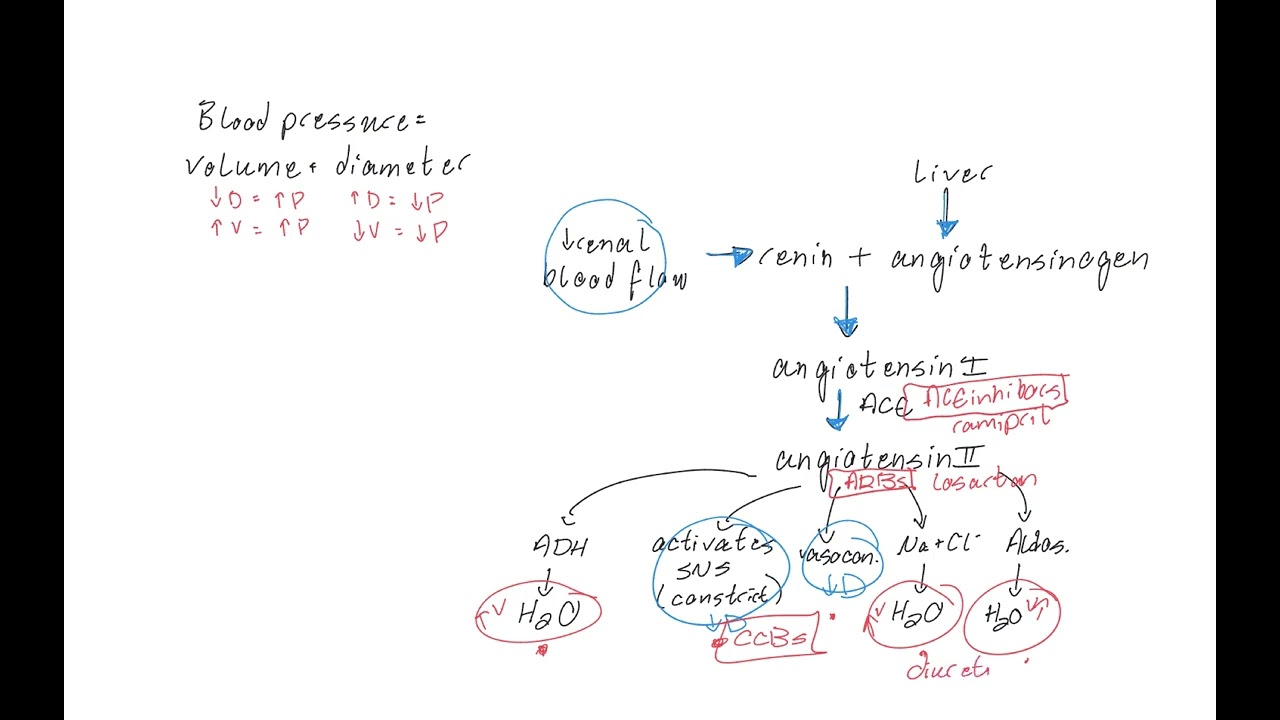 Blood pressure =
volume + diameter
↓D = ↑P ↑D = ↓P
↑V = ↑P ↓V = ↓P
Liver
↓renal
blood flow
renin + angiotensinogen
angiotensin I
ACE ACE inhibors
ramipril
angiotensin II
ARBs losartan
ADH
activates
SNS
(constrict)
vasocon.
Na + Cl-
Aldos.
↑V H2O
↓D
↓D
↑V H2O
H2O V↑
CCBs
diureti